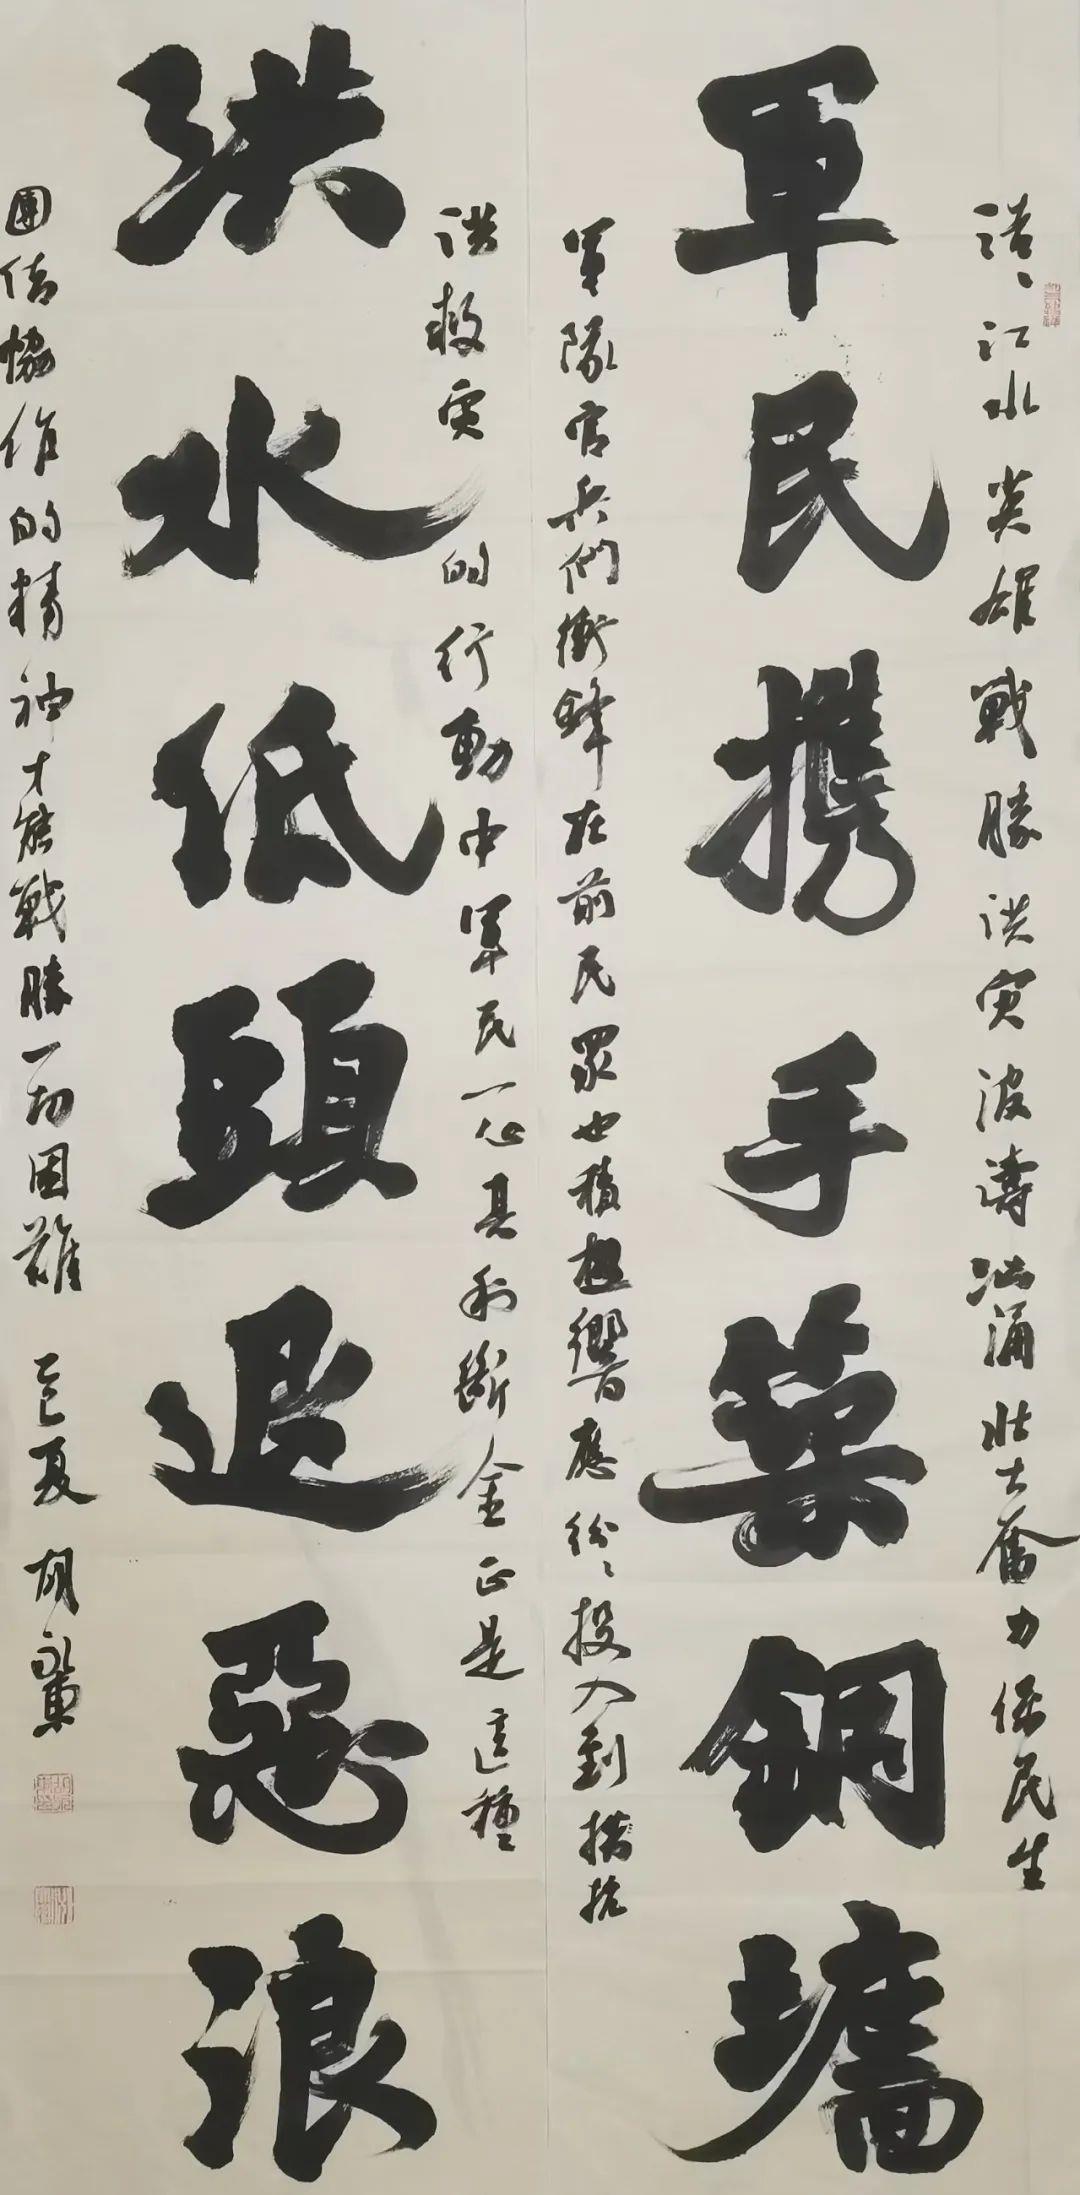 浩、江水英雄戰勝洪灾波濤汹涌壮士奮力保民生
軍民携手築銅墻
軍隊官兵們衝鋒在前民眾也積極響應紛、投入到抗
洪救灾的行動中軍民一心其利斷金正是這種
洪水低頭退惡浪
團结協作的精神才能戰勝一切困難 乙巳夏 胡